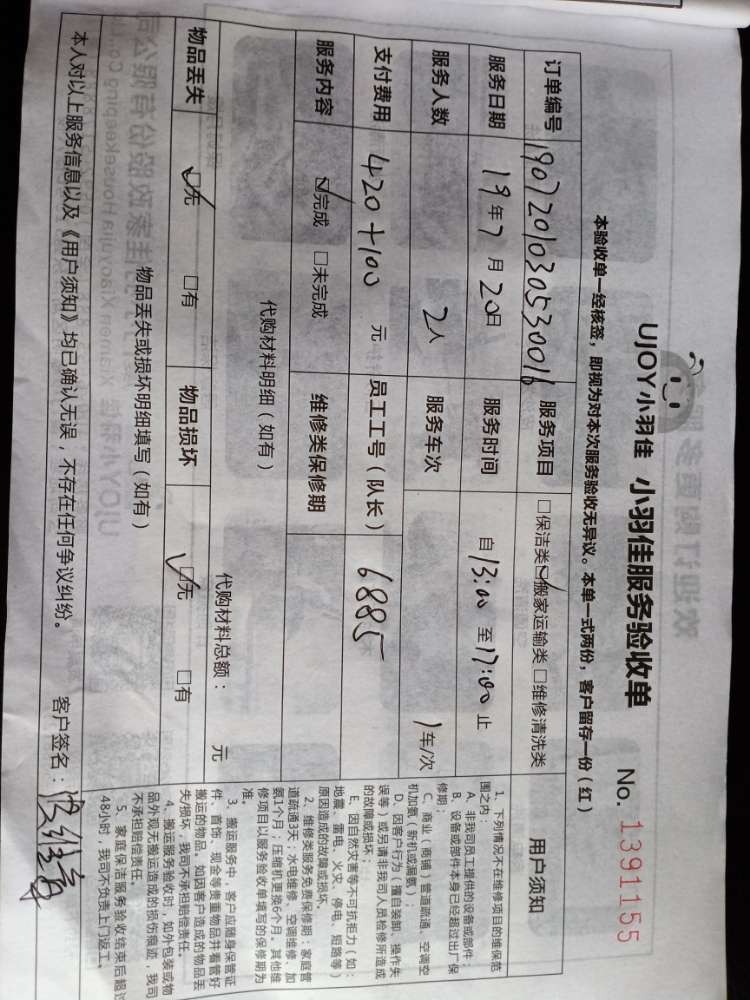 UJOY小羽佳 小羽佳服务验收单 No. 1391155
本验收单一经核签，即视为对本次服务验收无异议。本单一式两份，客户留存一份（红）
订单编号 190720103053001b 服务项目 □保洁类 ☑搬家运输类 □维修清洗类
服务日期 19年7月20日 服务时间 自13:00至17:00止
服务人数 2人 服务车次 1车/次
支付费用 420+100 元 员工工号（队长） 6885
服务内容 ☑完成 □未完成 维修类保修期
代购材料明细（如有） 代购材料总额： 元
物品丢失 ☑无 □有 物品损坏 ☑无 □有
物品丢失或损坏明细填写（如有）
本人对以上服务信息以及《用户须知》均已确认无误，不存在任何争议纠纷。 客户签名：
用户须知
1、下列情况不在维修项目的维保范
围之内：
A、非我司员工提供的设备或部件；
B、设备或部件本身已经超过出厂保
修期；
C、商业（商铺）管道疏通、空调空
机加氨（新机或漏氨）；
D、因客户行为（擅自装卸、操作失
误等）或另请非我司人员检修所造成
的故障或损坏；
E、因自然灾害等不可抗拒力（如：
地震、雷电、火灾、停电、短路等）
原因造成的故障或损坏。
2、维修类服务免费保修期：家庭管
道疏通3天；水电维修、空调维修、加
氨1个月；压缩机更换6个月。其他维
修项目以服务验收单填写的保修期为
准。
3、搬运服务中，客户应随身保管证
件、首饰、现金等贵重物品并看管好
搬运的物品。如因客户造成的物品丢
失/损坏，我司不承担赔偿责任。
4、搬运服务验收时，如外包装或物
品外观无搬运造成的损伤痕迹，我司
不承担赔偿责任。
5、家庭保洁服务验收结束后超过
48小时，我司不负责上门返工。